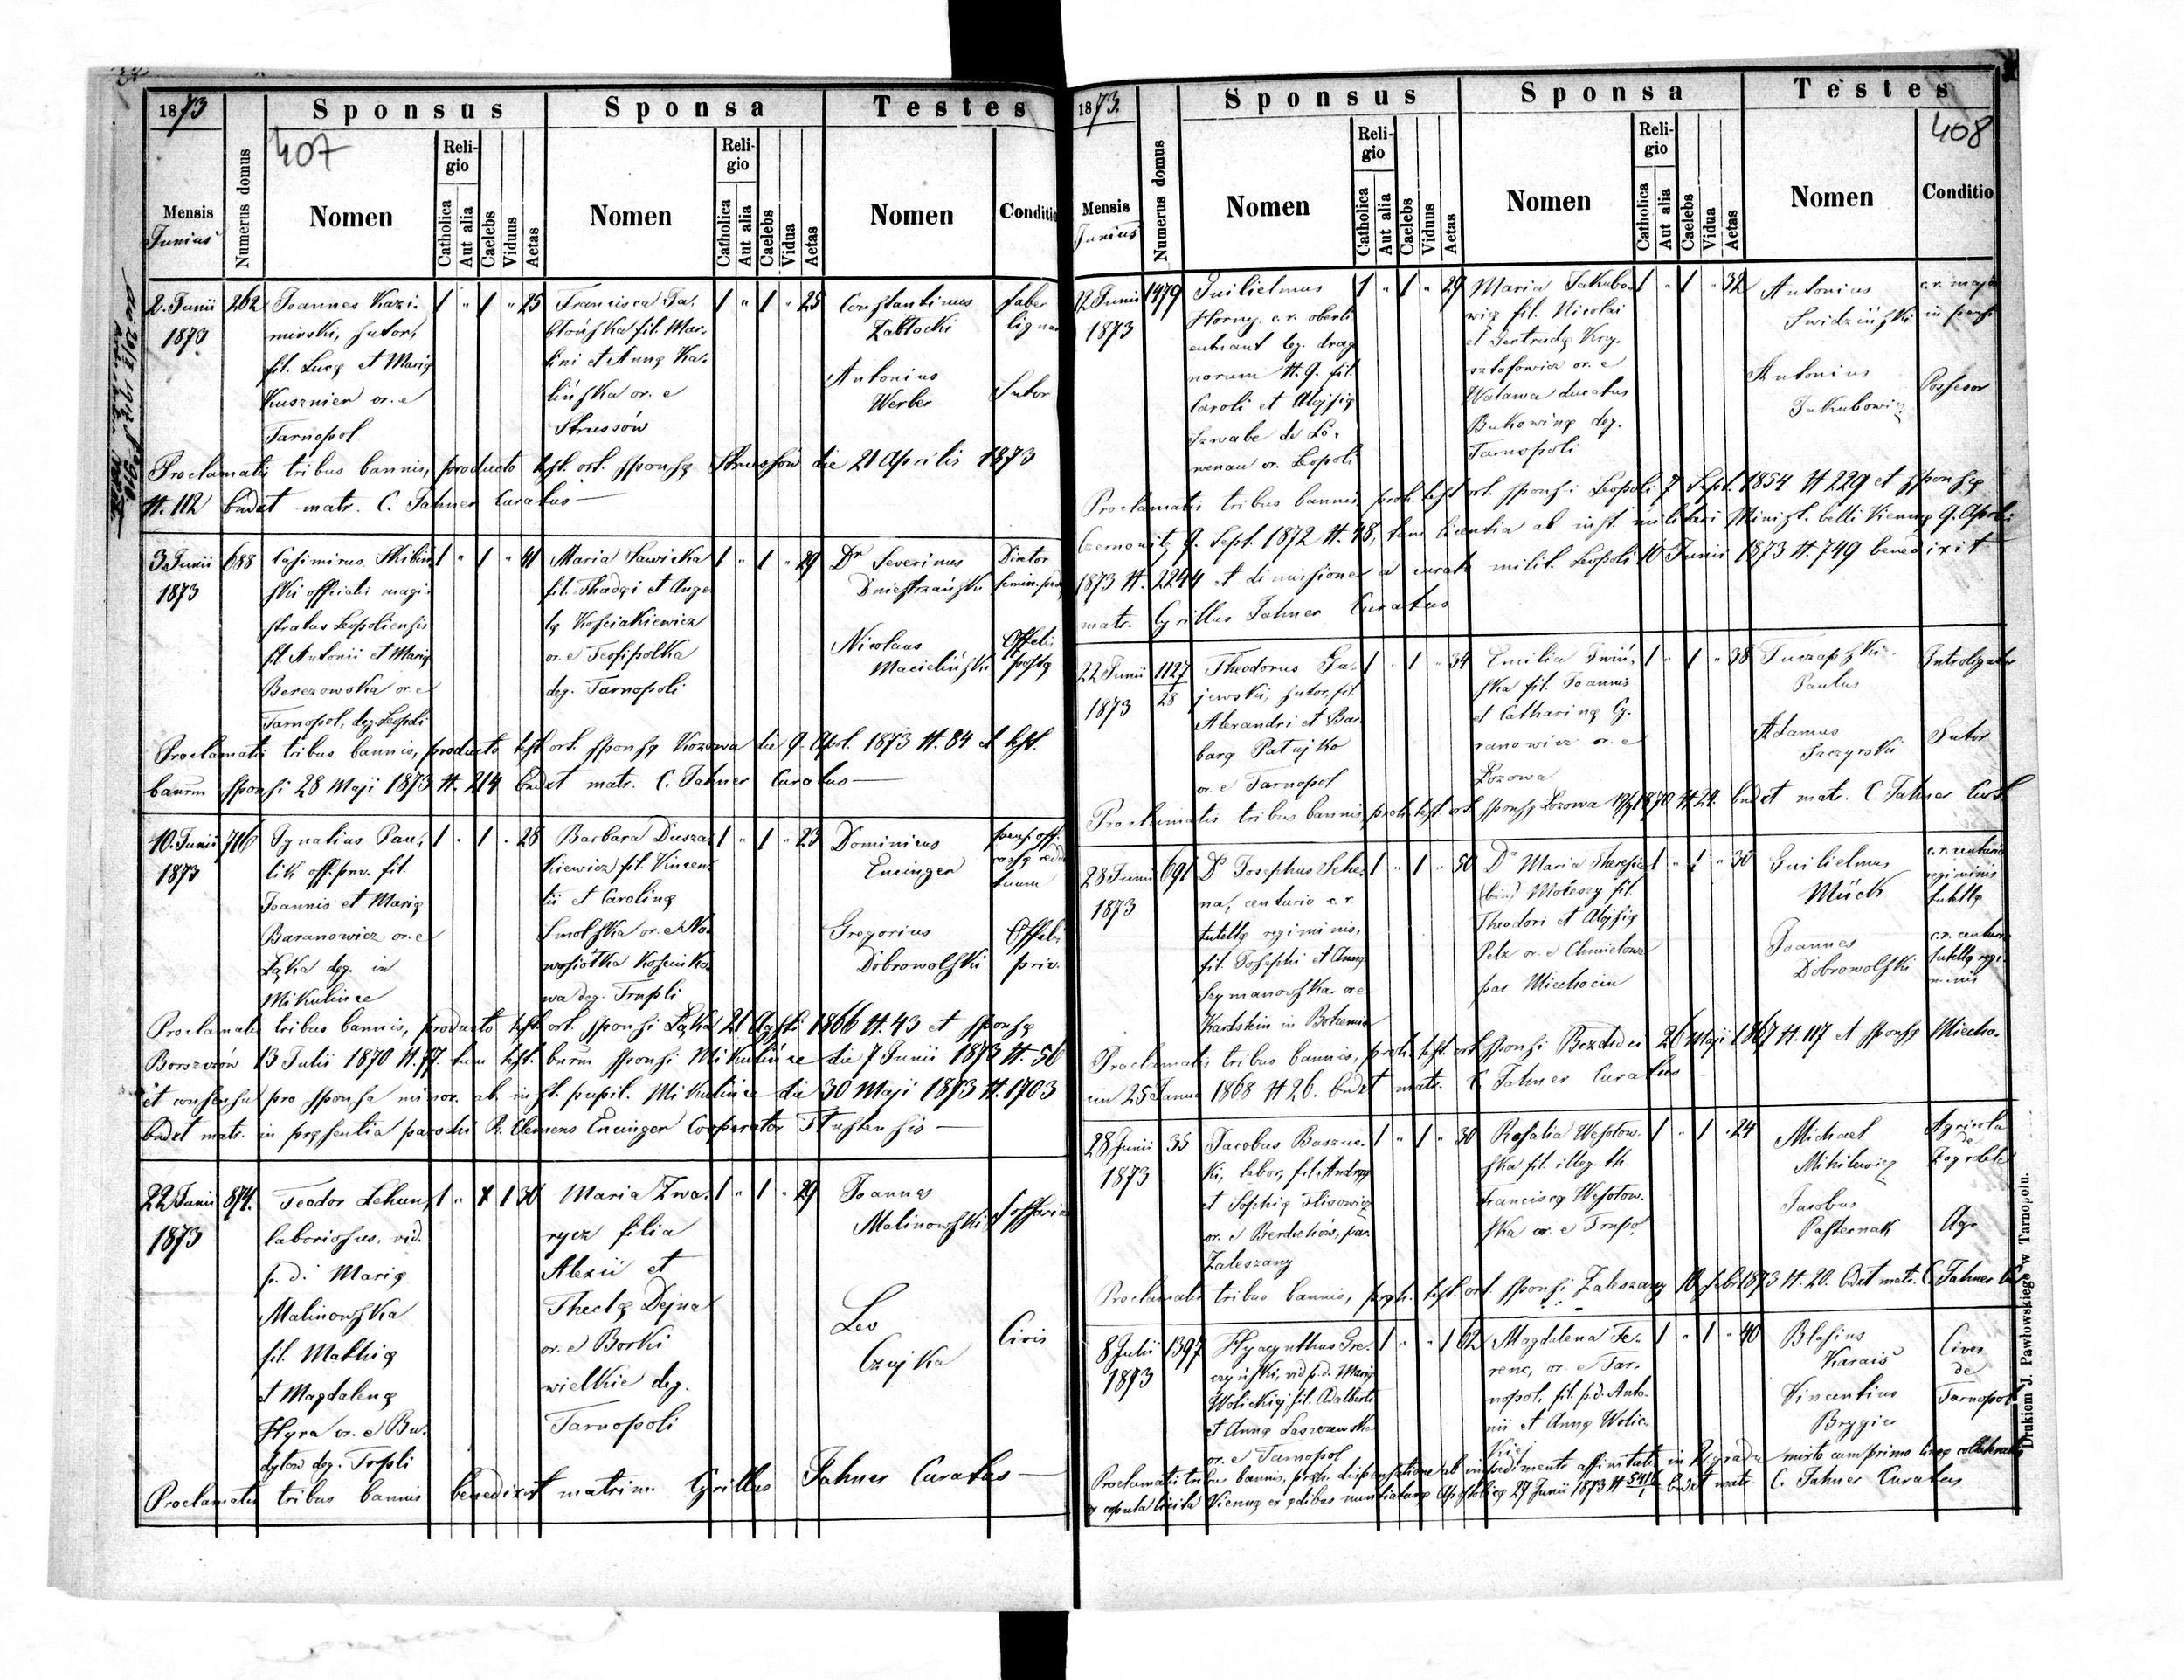 407
1873
Sponsus
Sponsa
Testes
Mensis
Junius
Numerus domus
Nomen
Religio
Catholica
Aut alia
Caelebs
Viduus
Aetas
Nomen
Religio
Catholica
Aut alia
Caelebs
Vidua
Aetas
Nomen
Conditio
2. Junii
1873
262
Joannes Kazi-
minski, sutor,
fil. Lucę et Marię
Kusznier or. e
Tarnopol
1 " 1 " 25
Francisca Ja-
błońska fil. Mar-
tini et Annę Ka-
lińska or. e
Strussów
1 " 1 " 25
Constantinus
Zabłocki
faber
lignar
Antonius
Werber
Sutor
Proclamatis tribus bannis, producto test. ort. sponsę Strussów die 21 Aprilis 1873
N. 112 bndxt matr. C. Jahner Curatus
3 Junii
1873
688
Casimirus Skibin-
ski officialis magi-
stratus Leopoliensis
fil. Antonii et Marię
Berezowska or. e
Tarnopol, deg. Leopoli
1 " 1 " 41
Maria Sawicka
fil. Thadęi et Ange-
lę Kosciakiewicz
or. e Teofipolka
deg. Tarnopoli
1 " 1 " 29
Dr Severinus
Dniestrzański
Nicolaus
Macieliński
Offcli
postę
Proclamatis tribus bannis, producto test. ort. sponsę Kozowa die 9. Aprl. 1873 N. 84 et test.
bannm sponsi 28 Maji 1873 N. 214 bndxt matr. C. Jahner Curatus
10. Junii
1873
716
Ignatius Pau-
lik off. priv. fil.
Joannis et Marię
Baranowicz or. e
Łąka deg. in
Mikulince
1 " 1 " 28
Barbara Dusza-
kiewicz fil. Vincen-
tii et Carolinę
Smolska or. e No-
wosiołka Kosciuko-
wa deg. Trnpli
1 " 1 " 23
Dominicus
Encinger
Gregorius
Dobrowolski
Offcli
priv.
Proclamatis tribus bannis, producto test. ort. sponsi Łąka 21 Agsti 1866 N. 43 et sponsę
Borszczów 13 Julii 1870 N. 77. tum test. bnrm sponsi Mikulince die 7 Junii 1873 N. 56
et consensu pro sponsa minor. ab inst. pupil. Mikulince die 30 Maji 1873 N. 1703
bndxt matr. in pręsentia parochi R. Clemens Encinger Cooperator
22 Junii
1873
874.
Teodor Lehun,
laboriosus, vid.
p. d. Marię
Malinowska
fil. Mathię
et Magdalenę
Hyra or. e Bu-
dyłów deg. Trpli
1 " 1 30
Maria Zwa-
rycz filia
Alexii et
Theclę Dejna
or. e Borki
wielkie deg.
Tarnopoli
1 " 1 " 29
Joannes
Malinowski
Leo
Czajka
Civis
Proclamatis tribus bannis benedixit matrim. Cyrillus Jahner Curatus
408
1873.
Sponsus
Sponsa
Testes
Mensis
Junius
Numerus domus
Nomen
Religio
Catholica
Aut alia
Caelebs
Viduus
Aetas
Nomen
Religio
Catholica
Aut alia
Caelebs
Vidua
Aetas
Nomen
Conditio
12 Junii
1873
1479
Guilielmus
Horny, c. r. oberli-
eutnant leg. drago-
norum N. 9. fil.
Caroli et Alojsię
Szwabe de Lö-
wenau or. Leopoli
1 " 1 " 29
Maria Jakubo-
wicz fil. Nicolai
et Gertrudę Krzy-
sztofowicz or. e
Walawa ducatus
Bukowinę deg.
Tarnopoli
1 " 1 " 32
Antonius
Swidziński
c. r. major
in pensi
Antonius
Jakubowicz
Possesor
Proclamatis tribus bannis proh. test. ort. sponsi Leopoli 7 Sept. 1854 N 229 et sponsę
Czernowitz 9. Sept. 1872 N. 48, tum licentia ab inst. militari Minist. belli Viennę 9. Aprili
1873 N. 2244 et dimissione a curato milit. Leopoli 10 Junii 1873 N. 749 benedixit
matr. Cyrillus Jahner Curatus
22 Junii
1873
1127
28
Theodorus Ga-
jewski, sutor, fil.
Alexandri et Bar-
barę Patujko
or. e Tarnopol
1 " 1 " 34
Emilia Iwiń-
ska fil. Joannis
et Catharinę Cy-
ranowicz or. e
Łozowa
1 " 1 " 38
Tuczapski
Paulus
Introligator
Adamus
Szczyrski
Sutor
Proclamatis tribus bannis, proh. test. ort. sponsę Łozowa 1870 N 24. bndxt matr. C. Jahner Curt.
28 Junii
1873
691
Dr Josephus Sche-
na, centurio c. r.
tutellę regiminis,
fil. Josephi et Annę
Szymanowska or. e
Kardskin in Bohemia
1 " 1 " 50
Da Maria Theresia
(bin) Mołeszy fil.
Theodori et Alojsię
Pelz or. e Chmielowa
par Miechocin
1 " 1 " 30
Guilielmus
Mück
c. r. centurio
regiminis
tutellę
Joannes
Dobrowolski
c. r. centurio
tutellę regi-
minis
Proclamatis tribus bannis, proh. test. ort. sponsi Bezdedei 26 Maji 1867 N. 117 et sponsę Miecho-
cin 25 Januar 1868 N 26. bndxt matr. C. Jahner Curatus
28 Junii
1873
35
Jacobus Baszuc-
ki, labor, fil. Andreę
et Sophię Flisowicz
or. e Berdichów, par.
Zaleszany
1 " 1 " 30
Rosalia Wesołow-
ska fil. illeg. th.
Franciscę Wesołow-
ska or. e Trnpol
1 " 1 " 24
Michael
Mihilewicz
Agricola
de
Zagrobela
Jacobus
Pasternak
Agr
Proclamatis tribus bannis, proh. test. ort. sponsi Zaleszany 10 Febr 1873 N. 20. bndxt matr. C. Jahner Cur
8 Julii
1873
1397
Hyacynthus Gre-
czyński, vid p. d. Marię
Wolickiej, fil. Adalberti
et Annę Laszczewska
or. e Tarnopol
1 " " 1 62
Magdalena Fe-
renc, or. e Tar-
nopol, fil. p. d. Anto-
nii et Annę Wolic-
kiej
1 " 1 " 40
Blasius
Karais
Vincentius
Brygier
Cives
de
Tarnopol
Proclamatis tribus bannis, proh. dispensatione ab impedimento affinitatis in II gradu mixto cum primo lineę collateralis
ex copula licita Viennę ex ędibus nuntiaturę Apostolicę 27 Junii 1873 N bndxt matr. C. Jahner Curatus
Drukiem J. Pawłowskiego w Tarnopolu.